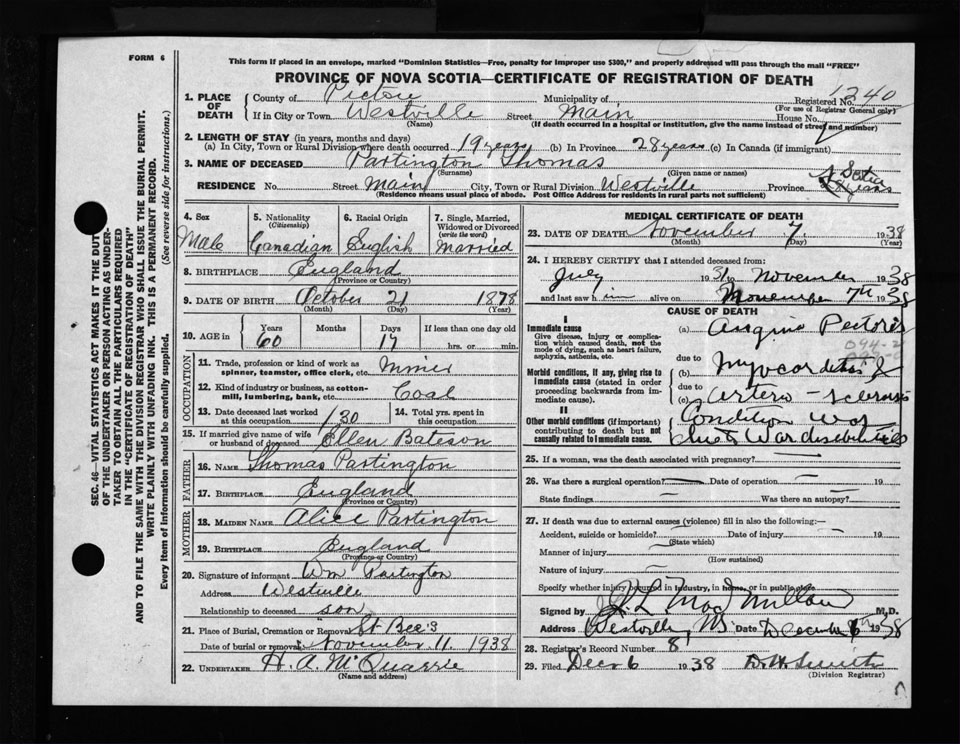 FORM 6
This form if placed in an envelope, marked "Dominion Statistics—Free, penalty for improper use $300," and properly addressed will pass through the mail "FREE"
PROVINCE OF NOVA SCOTIA—CERTIFICATE OF REGISTRATION OF DEATH
1. PLACE OF DEATH
County of Pictou Municipality of Registered No. 1240
(For use of Registrar General only)
If in City or Town Westville Street Main House No.
(Name) (If death occurred in a hospital or institution, give the name instead of street and number)
2. LENGTH OF STAY (in years, months and days)
(a) In City, Town or Rural Division where death occurred 19 years (b) In Province 28 years (c) In Canada (if immigrant)
3. NAME OF DECEASED Partington Thomas
(Surname) (Given name or names)
RESIDENCE No. Street Main City, Town or Rural Division Westville Province N. Scotia
(Residence means usual place of abode. Post Office Address for residents in rural parts not sufficient)
4. Sex
Male
5. Nationality (Citizenship)
Canadian
6. Racial Origin
English
7. Single, Married, Widowed or Divorced (write the word)
Married
8. BIRTHPLACE England
(Province or Country)
9. DATE OF BIRTH October 21 1878
(Month) (Day) (Year)
10. AGE in Years Months Days If less than one day old
60 17 hrs. or min.
OCCUPATION
11. Trade, profession or kind of work as spinner, teamster, office clerk, etc. Miner
12. Kind of industry or business, as cotton-mill, lumbering, bank, etc. Coal
13. Date deceased last worked at this occupation 1930
14. Total yrs. spent in this occupation
15. If married give name of wife or husband of deceased Ellen Bateson
FATHER
16. NAME Thomas Partington
17. BIRTHPLACE England
(Province or Country)
MOTHER
18. MAIDEN NAME Alice Partington
19. BIRTHPLACE England
(Province or Country)
20. Signature of informant Wm Partington
Address Westville
Relationship to deceased son
21. Place of Burial, Cremation or Removal St Bee's
Date of burial or removal November 11 1938
22. UNDERTAKER H. A. McQuarrie
(Name and address)
MEDICAL CERTIFICATE OF DEATH
23. DATE OF DEATH November 7 1938
(Month) (Day) (Year)
24. I HEREBY CERTIFY that I attended deceased from:
July 1931 to November 1938
and last saw him alive on November 7th 1938
CAUSE OF DEATH
I
Immediate cause
Give disease, injury or complication which caused death, not the mode of dying, such as heart failure, asphyxia, asthenia, etc.
(a) Angina Pectoris
due to
Morbid conditions, if any, giving rise to immediate cause (stated in order proceeding backwards from immediate cause).
(b) Myocarditis &
due to
(c) Arterio-sclerosis
II
Other morbid conditions (if important) contributing to death but not causally related to immediate cause.
Condition was
due to War disabilities
25. If a woman, was the death associated with pregnancy?
26. Was there a surgical operation? Date of operation 19
State findings Was there an autopsy?
27. If death was due to external causes (violence) fill in also the following:—
Accident, suicide or homicide? Date of injury 19
(State which)
Manner of injury
(How sustained)
Nature of injury
Specify whether injury occurred in industry, in home, or in public place
Signed by MacMillan M.D.
Address Westville, NS Date December 6th 1938
28. Registrar's Record Number 81
29. Filed Dec 6 1938 D. H. Smith
(Division Registrar)
SEC. 46—VITAL STATISTICS ACT MAKES IT THE DUTY
OF THE UNDERTAKER OR PERSON ACTING AS UNDERTAKER
TO OBTAIN ALL THE PARTICULARS REQUIRED
IN THE "CERTIFICATE OF REGISTRATION OF DEATH"
AND TO FILE THE SAME WITH THE DIVISION REGISTRAR WHO SHALL ISSUE THE BURIAL PERMIT.
WRITE PLAINLY WITH UNFADING INK. THIS IS A PERMANENT RECORD.
Every item of information should be carefully supplied. (See reverse side for instructions.)